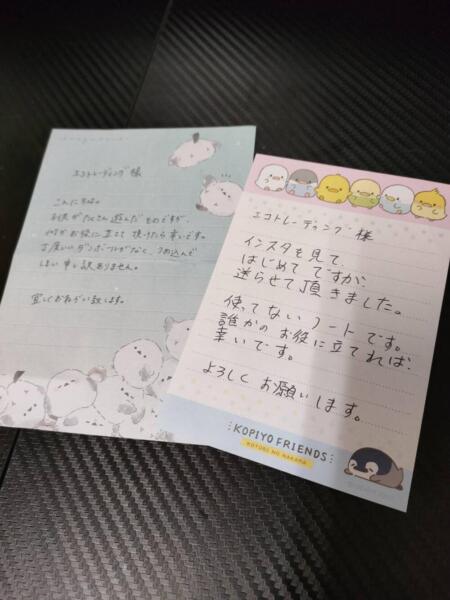 エコトレーディング様
こんにちは。
子供がたくさん遊んだものですが、
何かお役に立てて頂けたら幸いです。
丁度いいダンボールがなく、つめ込んで
しまい申し訳ありません。
宜しくお願い致します。
エコトレーディング様
インスタを見て、
はじめてですが、
送らせて頂きました。
使ってないノートです。
誰かのお役に立てれば、
幸いです。
よろしくお願いします。
KOPIYO FRIENDS
KOTORI NO NAKAMA